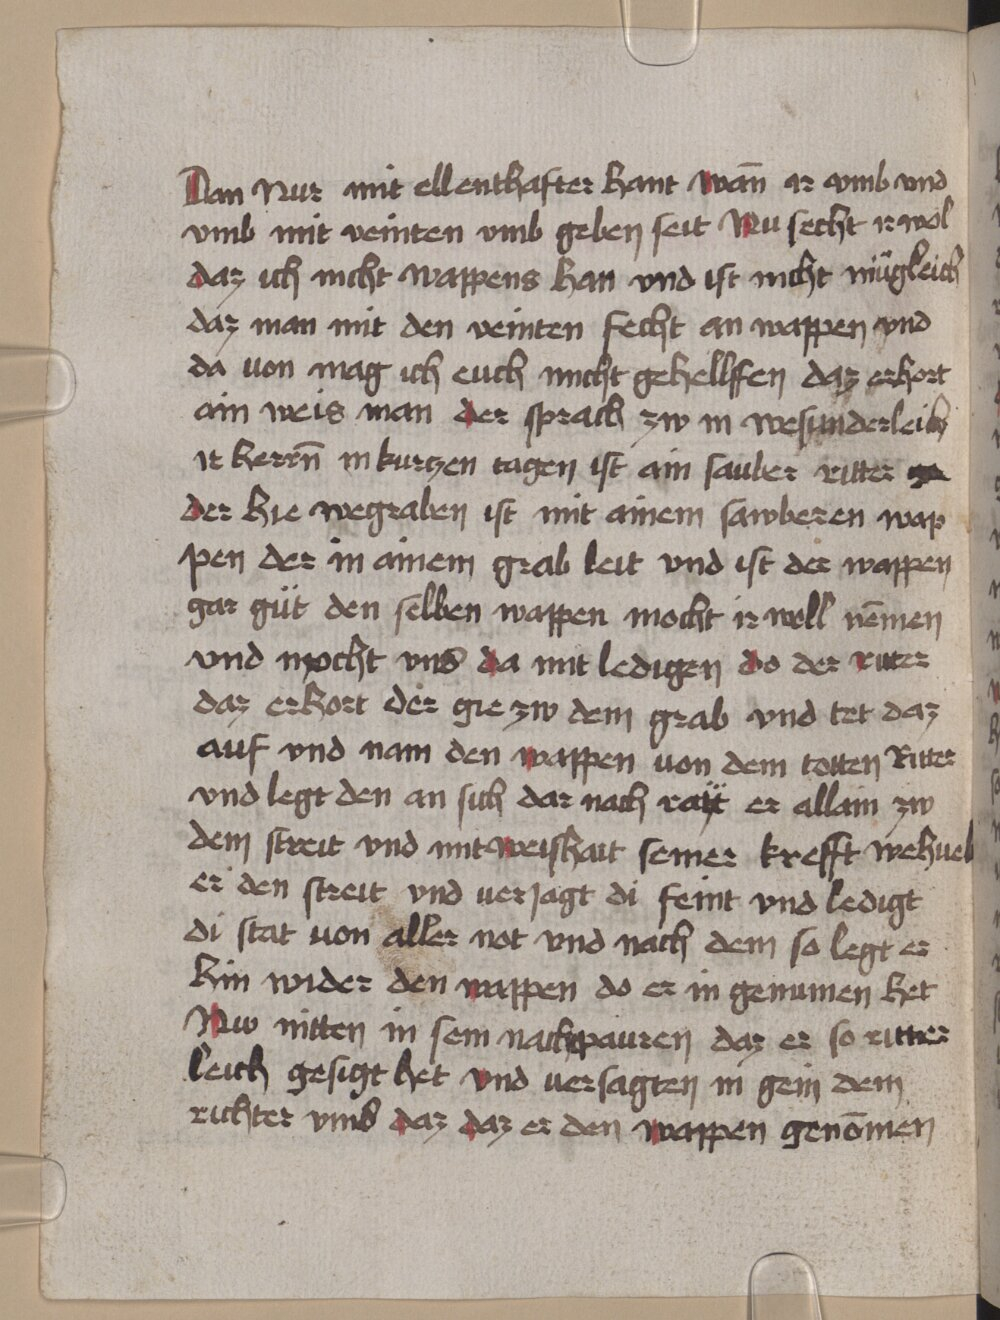 Dan Nur mit ellenthafter hant wan̄ ir vmb vnd
vmb mit veinten vmb geben seit Nu secht ir wol
daz ich nicht wappens han vnd ist nicht mügleich
daz man mit den veinten fecht an wappen vnd
da von mag ich euch nicht gehellffen daz erhort
ain weis man der sprach zw in wesunderleich
ir herrn̄ in kurtzen tagen ist ain sauber ritter
der hie wegraben ist mit ainem sawberen wap
pen der in ainem grab leit vnd ist der wappen
gar güt den selben wappen mocht ir woll nēmen
vnd mocht vns da mit ledigen do der ritter
daz erhort der gie zw dem grab vnd tet daz
auf vnd nam den wappen von dem totten Ritter
vnd legt den an sich dar nach rayt er allain zw
dem streit vnd mit weishait seiner krefft wehueb
er den streit vnd veriagt di feint vnd ledigt
di stat von aller not vnd nach dem so legt er
hin wider den wappen do er in genumen het
Nw nitten in sein nachpauren daz er so ritter
leich gesigt het vnd versagten in gein dem
richter vmb daz daz er den wappen genōmen